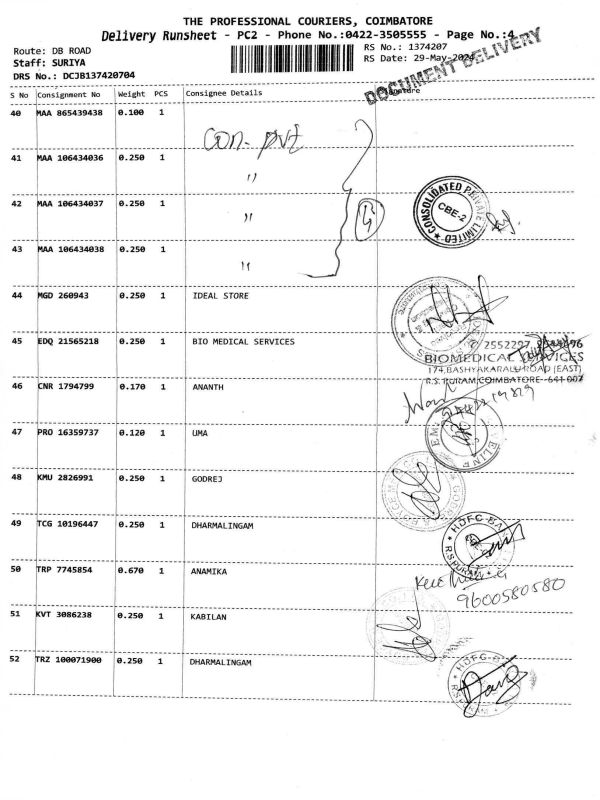 THE PROFESSIONAL COURIERS, COIMBATORE
Delivery Runsheet - PC2 - Phone No.:0422-3505555 - Page No.:4
Route: DB ROAD
Staff: SURIYA
DRS No.: DCJB137420704
RS No.: 1374207
RS Date: 29-May-2024
DOCUMENT DELIVERY
S No Consignment No Weight PCS Consignee Details
40 MAA 865439438 0.100 1 con-pvt
41 MAA 106434036 0.250 1 "
42 MAA 106434037 0.250 1 "
CONSOLIDATED PRIVATE LIMITED
CBE-2
43 MAA 106434038 0.250 1 "
44 MGD 260943 0.250 1 IDEAL STORE
45 EDQ 21565218 0.250 1 BIO MEDICAL SERVICES
2552297
BIOMEDICAL SERVICES
174,BASHYAKARALU ROAD (EAST)
R.S. PURAM,COIMBATORE- 641 007
46 CNR 1794799 0.170 1 ANANTH
47 PRO 16359737 0.120 1 UMA
48 KMU 2826991 0.250 1 GODREJ
49 TCG 10196447 0.250 1 DHARMALINGAM
HDFC BANK
50 TRP 7745854 0.670 1 ANAMIKA
9600580580
51 KVT 3086238 0.250 1 KABILAN
52 TRZ 100071900 0.250 1 DHARMALINGAM
HDFC